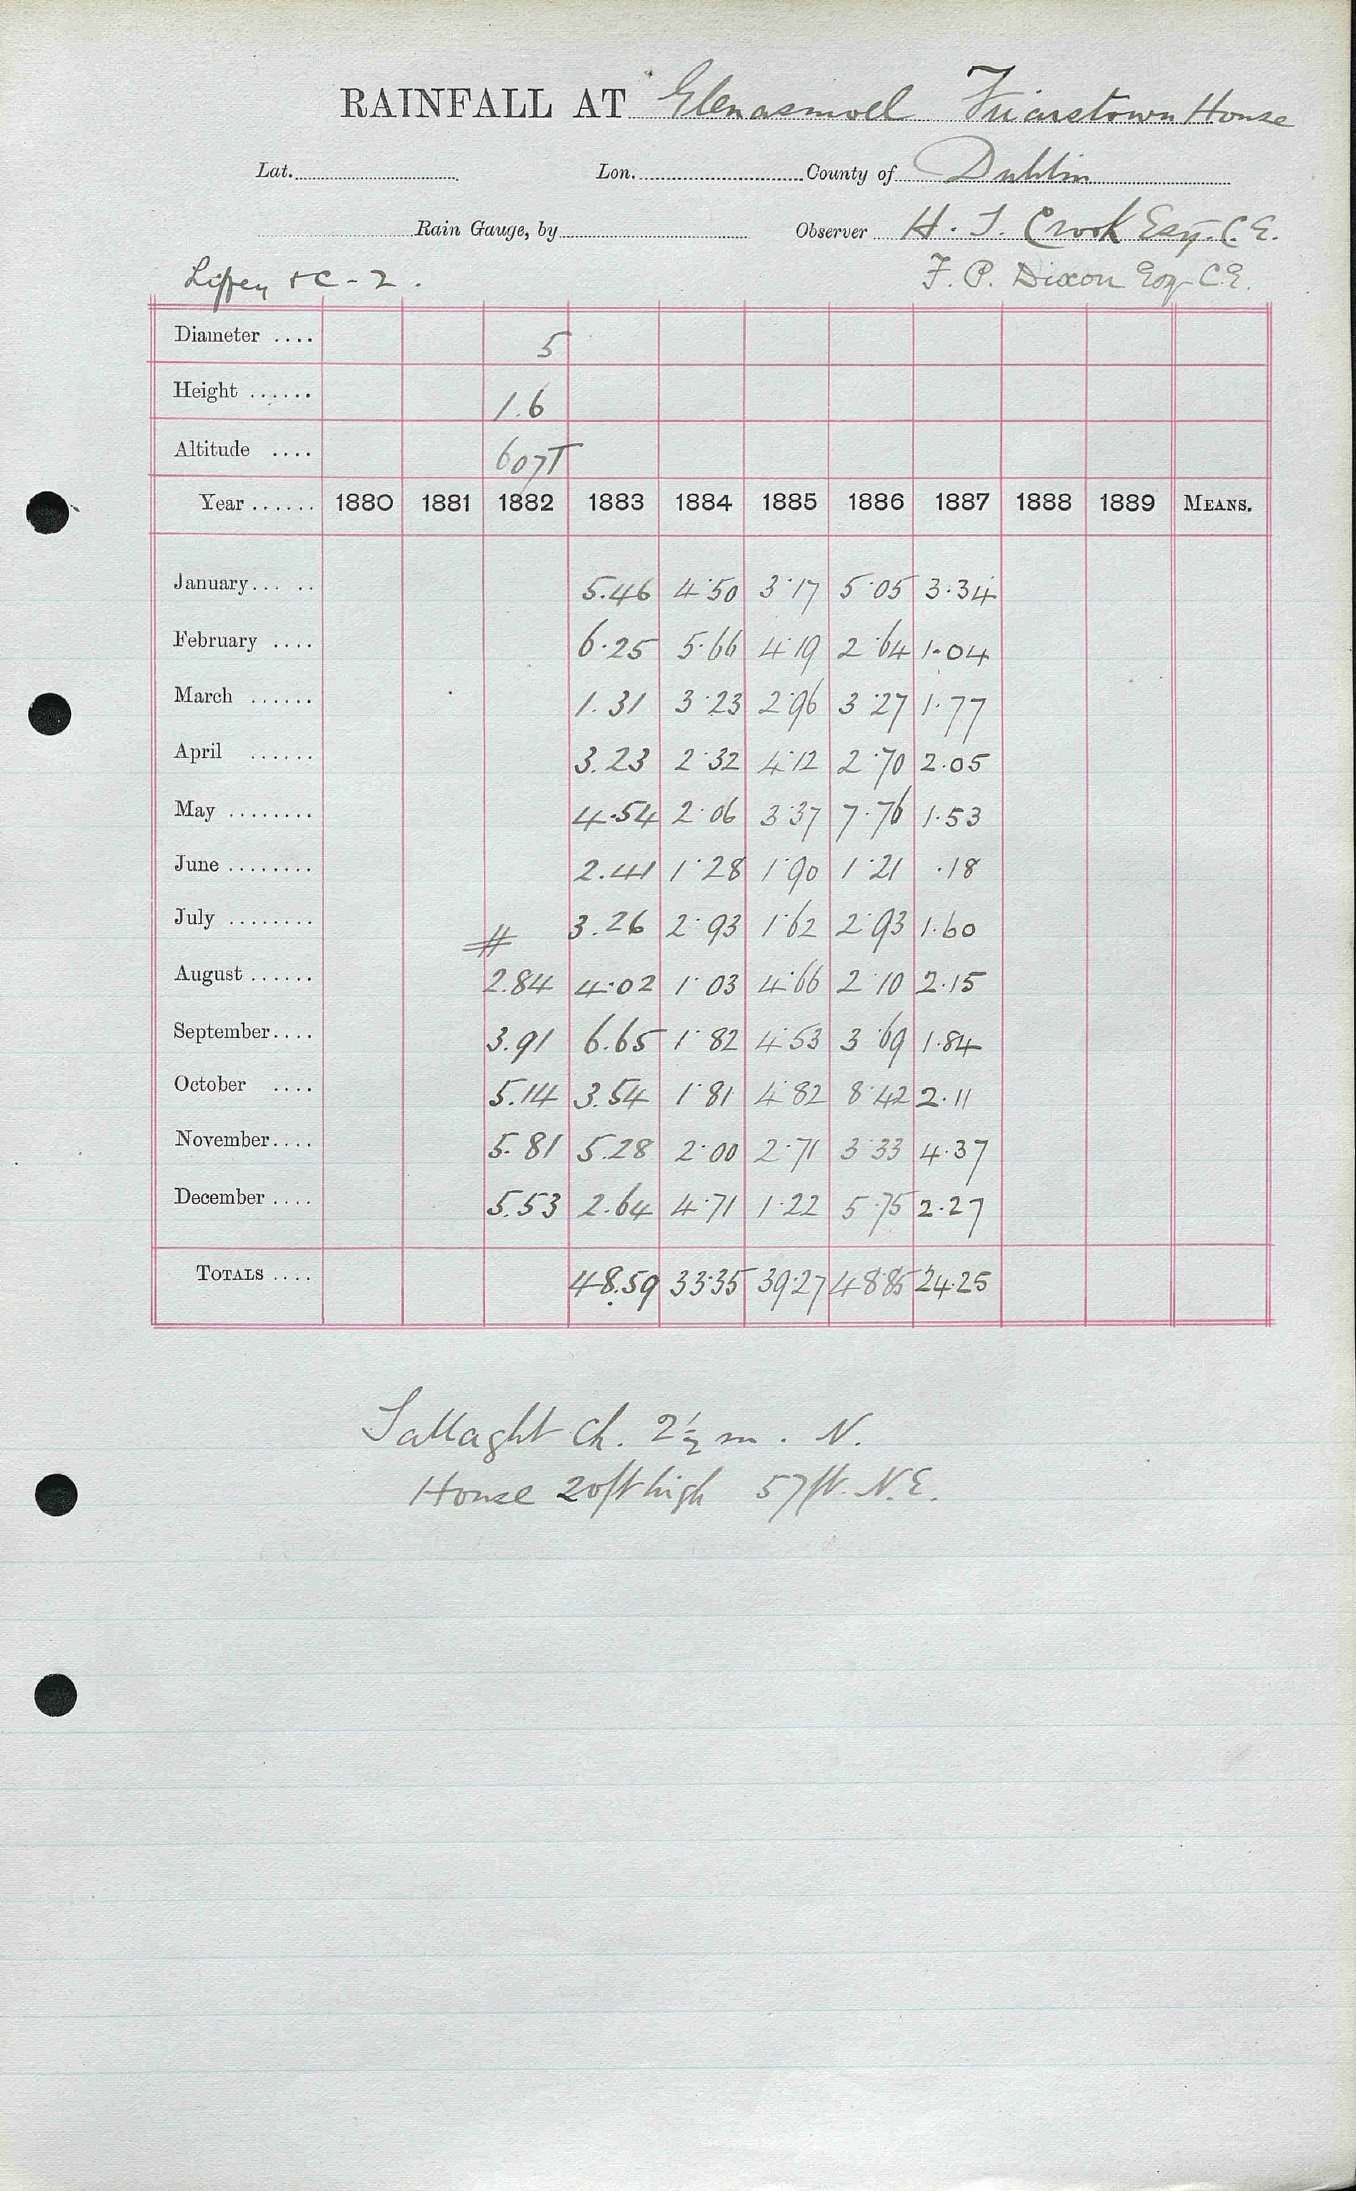 RAINFALL AT Glenasmoel Friarstown House
Lat. Lon. County of Dublin
Rain Gauge, by Observer H. T. Crook Esq. C.E.
Liffey &c - 2. F. P. Dixon Esq C.E.
Diameter .... 5
Height ...... 1.6
Altitude .... 607T
Year ...... 1880 1881 1882 1883 1884 1885 1886 1887 1888 1889 MEANS.
January... .. 5.46 4.50 3.17 5.05 3.34
February .... 6.25 5.66 4.19 2.64 1.04
March ...... 1.31 3.23 2.96 3.27 1.77
April ...... 3.23 2.32 4.12 2.70 2.05
May ........ 4.54 2.06 3.37 7.76 1.53
June ........ 2.41 1.28 1.90 1.21 .18
July ........ # 3.26 2.93 1.62 2.93 1.60
August ...... 2.84 4.02 1.03 4.66 2.10 2.15
September.... 3.91 6.65 1.82 4.53 3.69 1.84
October .... 5.14 3.54 1.81 4.82 8.42 2.11
November.... 5.81 5.28 2.00 2.71 3.33 4.37
December .... 5.53 2.64 4.71 1.22 5.75 2.27
TOTALS .... 48.59 33.35 39.27 48.85 24.25
Tallaght Ch. 2½ m. N.
House 20ft high 57ft. N.E.